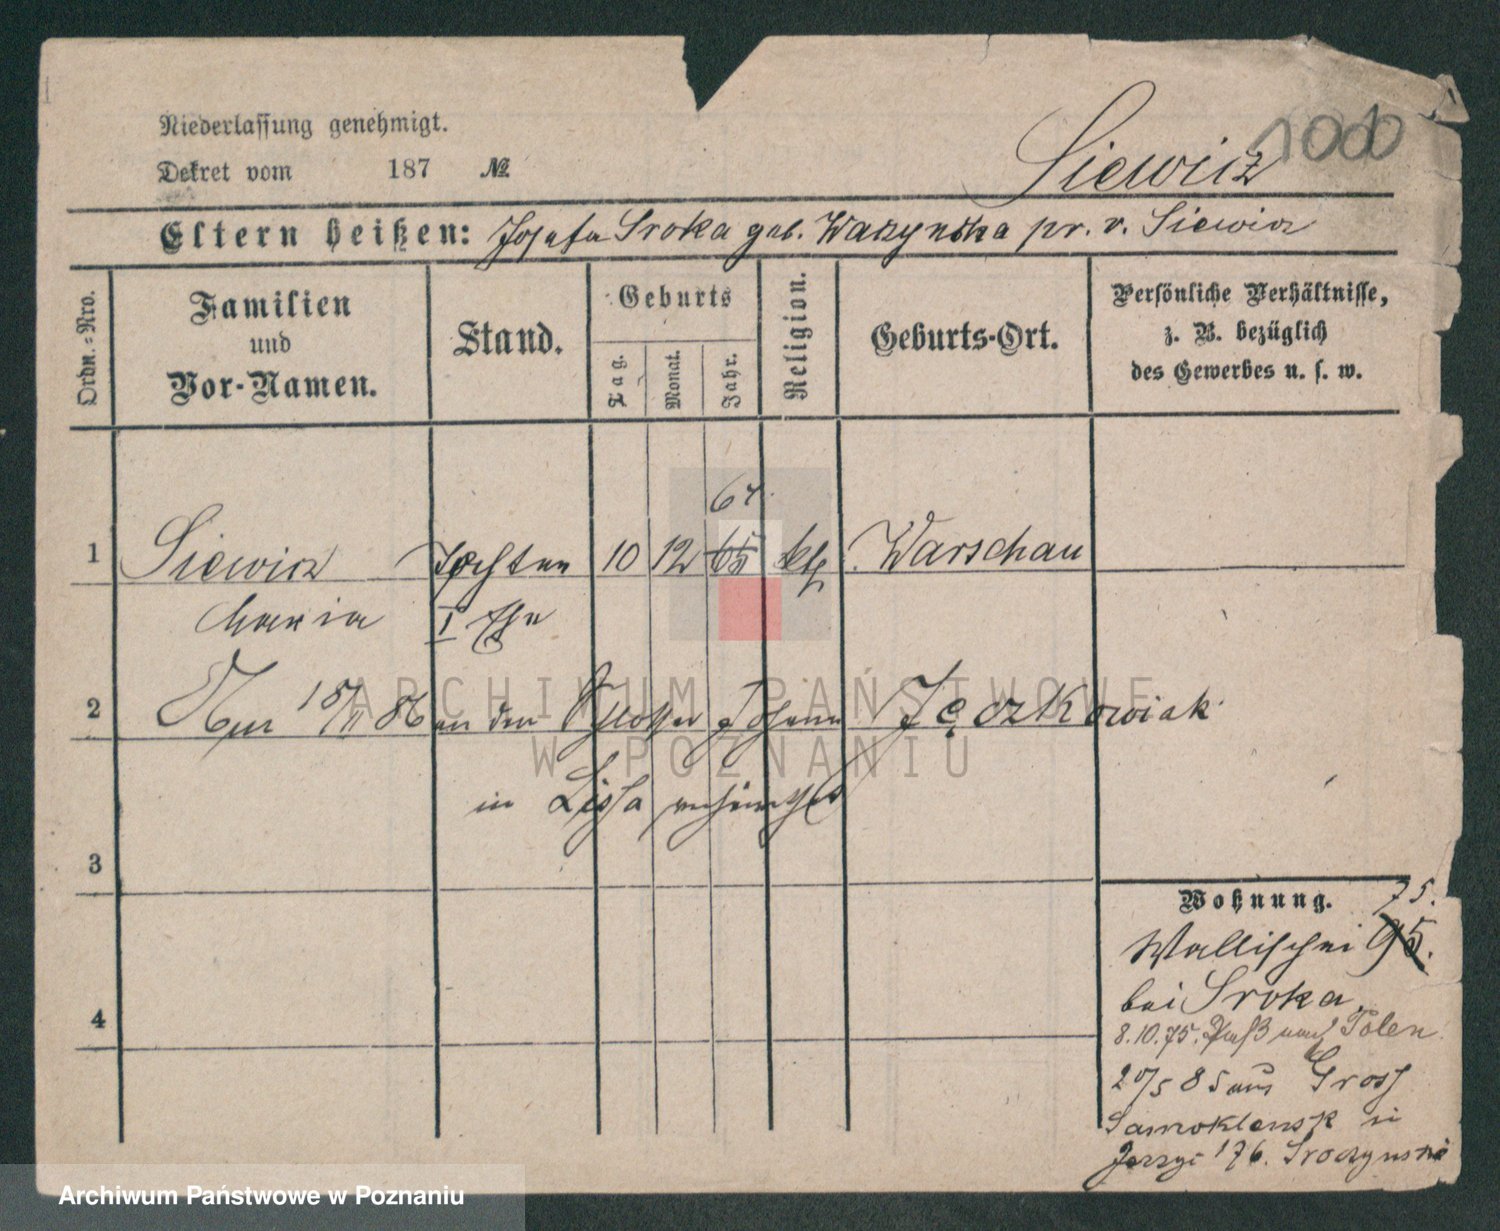 Niederlassung genehmigt.
Dekret vom 187 №
Siewicz
1000
Eltern heißen: Josefa Sroka geb. Waszynska pr. v. Siewicz
Ordn.-Nro.
Familien
und
Vor-Namen.
Stand.
Geburts
Tag.
Monat.
Jahr.
Religion.
Geburts-Ort.
Persönliche Verhältnisse,
z. B. bezüglich
des Gewerbes u. s. w.
67.
1 Siewicz Tochter 10 12 65 kth. Warschau
Maria I Ehe
2 15/II 86 an den Schlosser Johann Jęczkowiak
in Lissa verheirathet
3
4
Wohnung. 75.
Wallischei 95.
bei Sroka
8.10.75. Paß nach Polen
20/5 85 aus Gross
Samoklensk in
Jerzyi 176.
ARCHIWUM PAŃSTWOWE
W POZNANIU
Archiwum Państwowe w Poznaniu